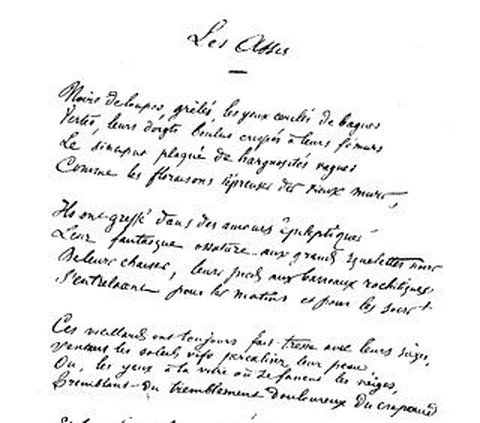 Les Assis
Noirs de loupes, grêlés, les yeux cerclés de bagues
Vertes, leurs doigts boulus crispés à leurs fémurs
Le sinciput plaqué de hargnosités vagues
Comme les floraisons lépreuses des vieux murs,
Ils ont greffé dans des amours épileptiques
Leur fantasque ossature aux grands squelettes noirs
De leurs chaises, leurs pieds aux barreaux rachitiques
S'entrelacent pour les matins et pour les soirs !
Ces vieillards ont toujours fait tresse avec leurs sièges,
Sentant les soleils vifs percaliser leur peau,
Ou, les yeux à la vitre où se fanent les neiges,
Tremblant du tremblement douloureux du crapaud